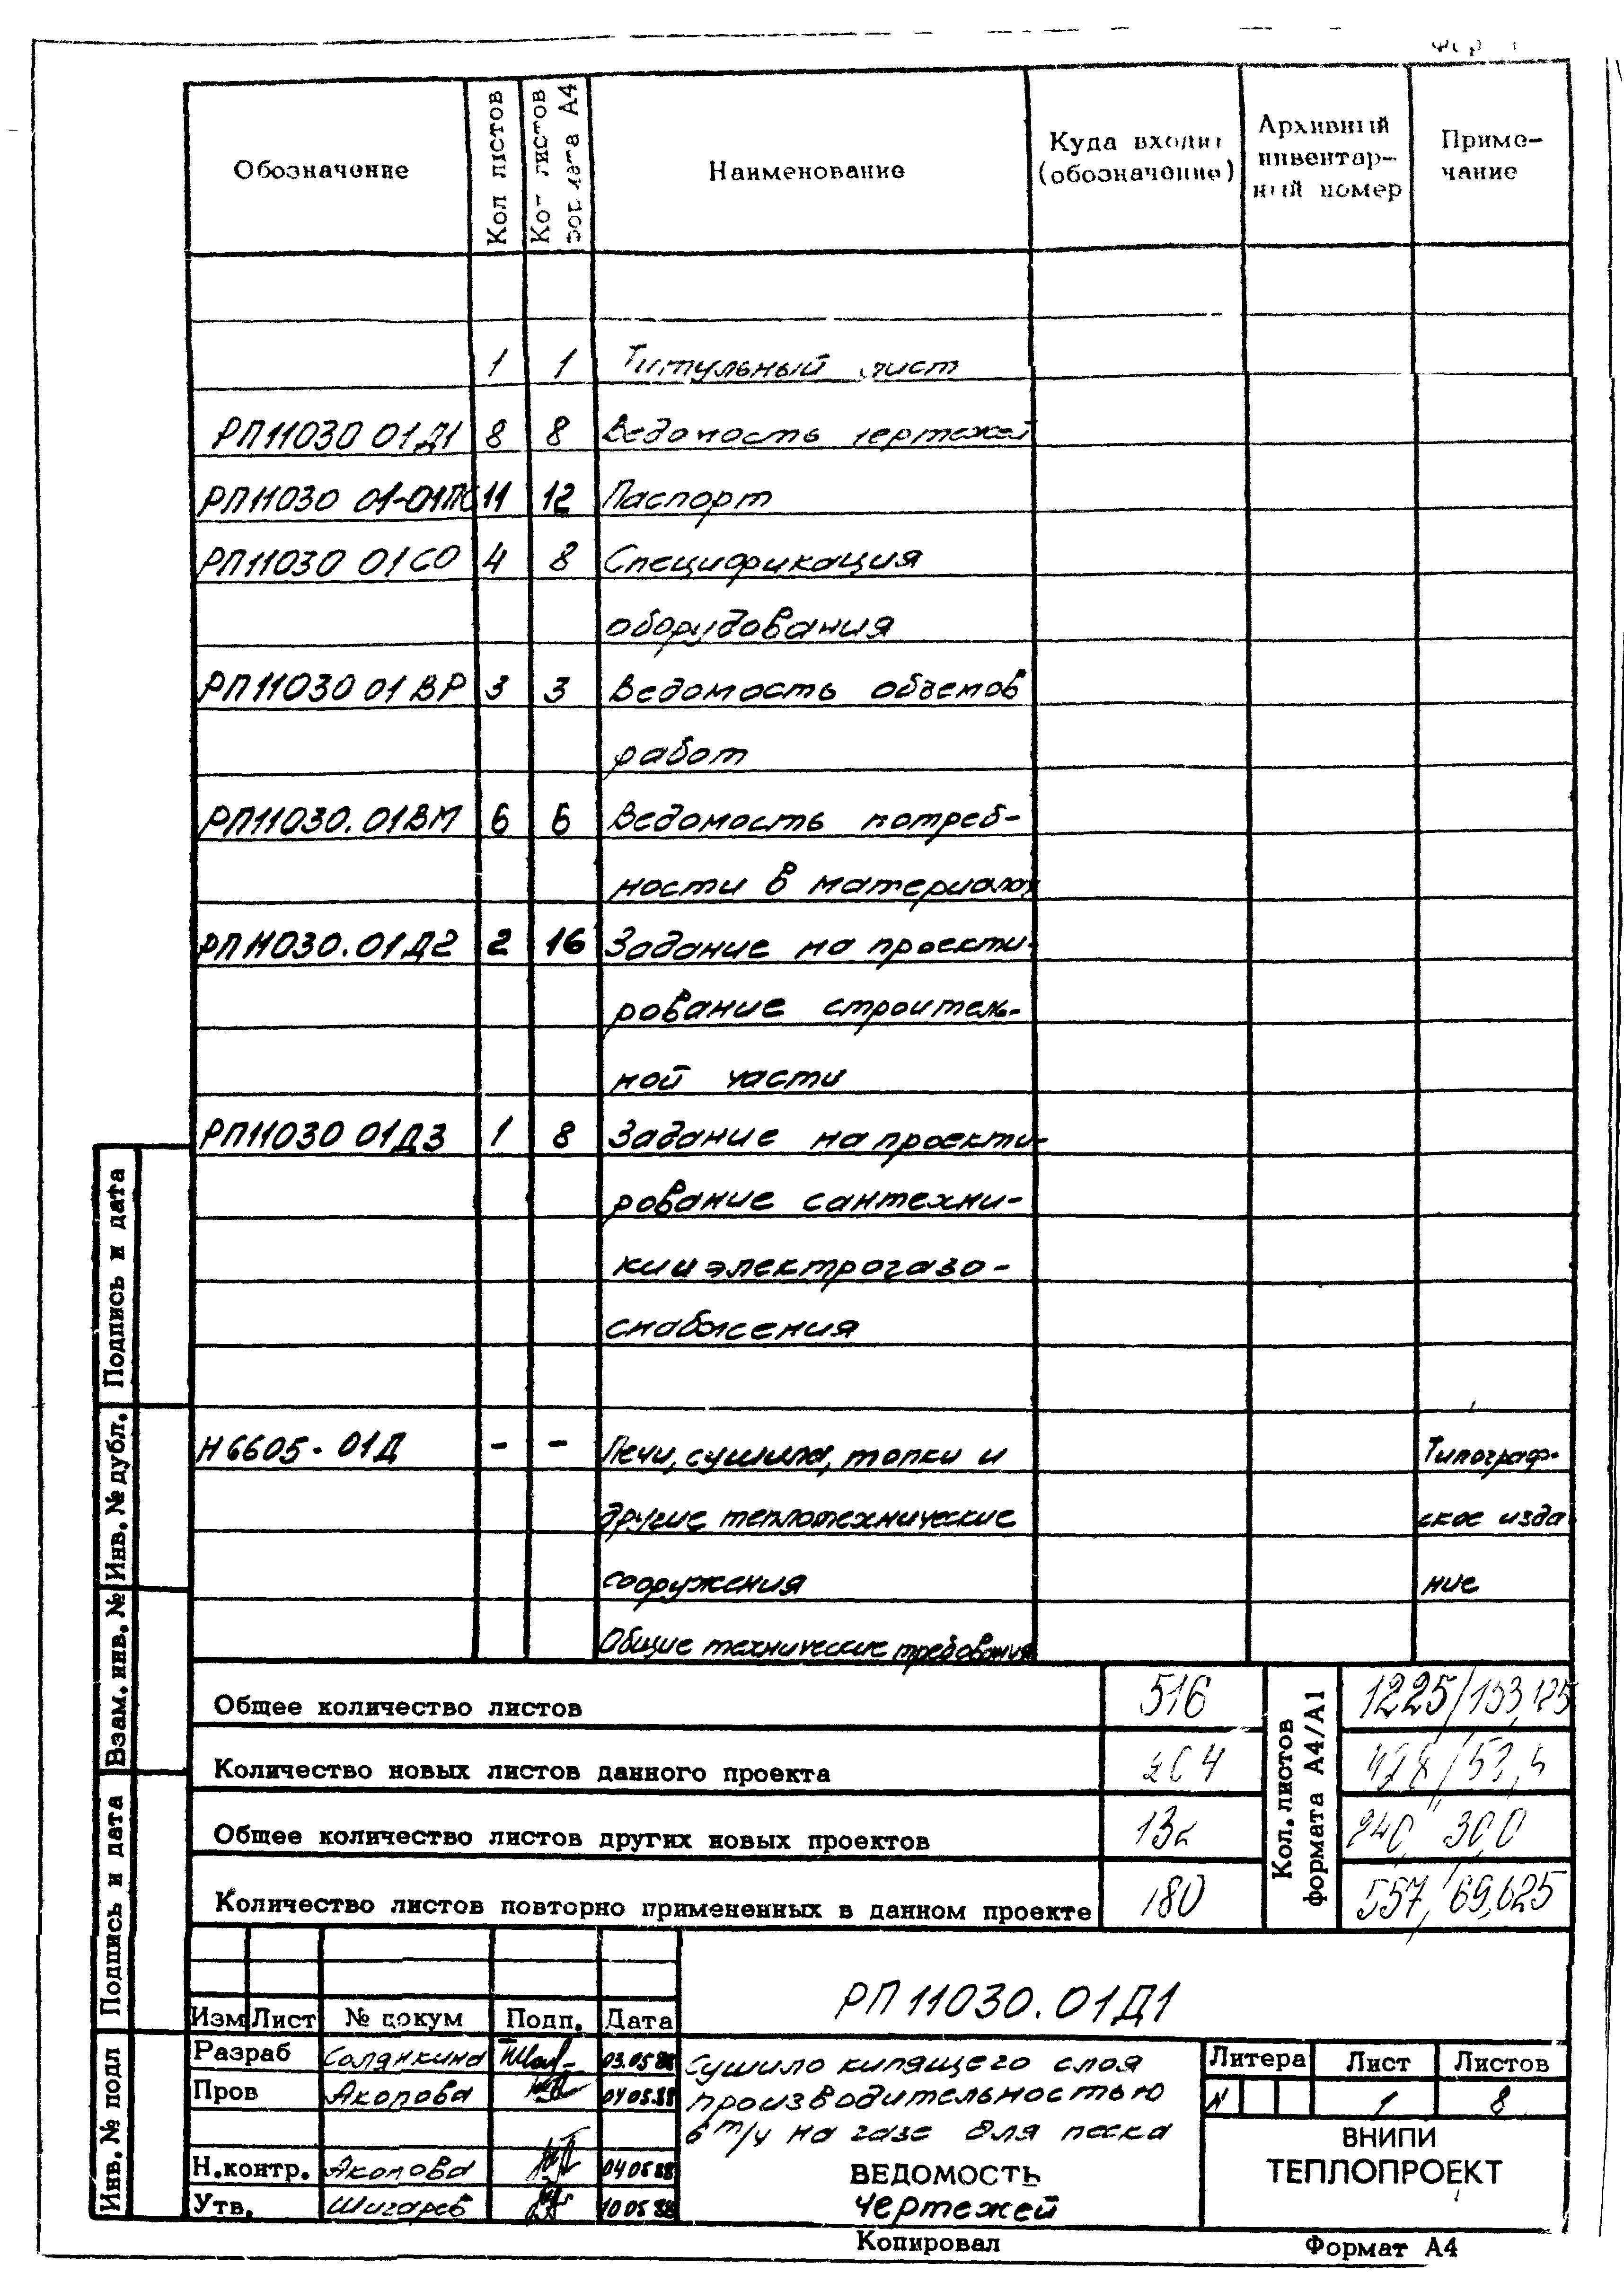 Обозначение
Кол листов
листов А4
Наименование
Куда входит
(обозначение)
Архивный
инвентар-
ный номер
Приме-
чание
1 1 Титульный лист
РП11030 01Д1 8 8 Ведомость чертежей
РП11030 01-01ПС 11 12 Паспорт
РП11030 01СО 4 8 Спецификация
оборудования
РП11030 01ВР 3 3 Ведомость объемов
работ
РП11030.01ВМ 6 6 Ведомость потреб-
ности в материалах
РП11030.01Д2 2 16 Задание на проекти-
рование строитель-
ной части
РП11030 01Д3 1 8 Задание на проекти-
рование сантехни-
ки и электрогазо-
снабжения
Н6605-01Д - - Печи, сушила, топки и Типограф-
другие теплотехнические ское изда
сооружения ние
Общие технические требования
Общее количество листов 516 1225/153,125
Количество новых листов данного проекта 204 428/53,5
Общее количество листов других новых проектов 132 240/30,0
Количество листов повторно примененных в данном проекте 180 557/69,625
Кол. листов
формата А4/А1
РП11030.01Д1
Изм Лист № докум Подп. Дата
Разраб Солянкина 03.05.88
Пров Акопова 04.05.88
Н.контр. Акопова 04.05.88
Утв. Шигарев 10.05.88
Сушило кипящего слоя
производительностью
6 т/ч на газе для песка
ВЕДОМОСТЬ
чертежей
Литера Лист Листов
1 8
ВНИПИ
ТЕПЛОПРОЕКТ
Копировал
Формат А4
Подпись и дата
Инв. № дубл.
Взам. инв. №
Подпись и дата
Инв. № подл